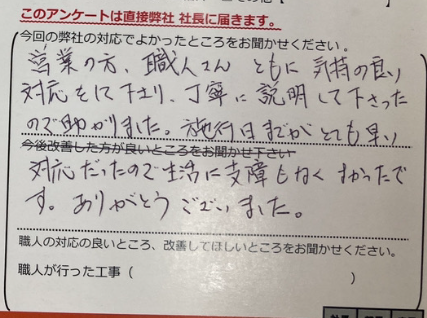 このアンケートは直接弊社 社長に届きます。
今回の弊社の対応でよかったところをお聞かせください。
営業の方、職人さん ともに 気持の良い
対応をして下さり、丁寧に説明して下さった
ので助かりました。施行日までがとても早い
今後改善した方が良いところをお聞かせ下さい
対応だったので生活に支障もなく よかったで
す。ありがとうございました。
職人の対応の良いところ、改善してほしいところをお聞かせください。
職人が行った工事（ ）